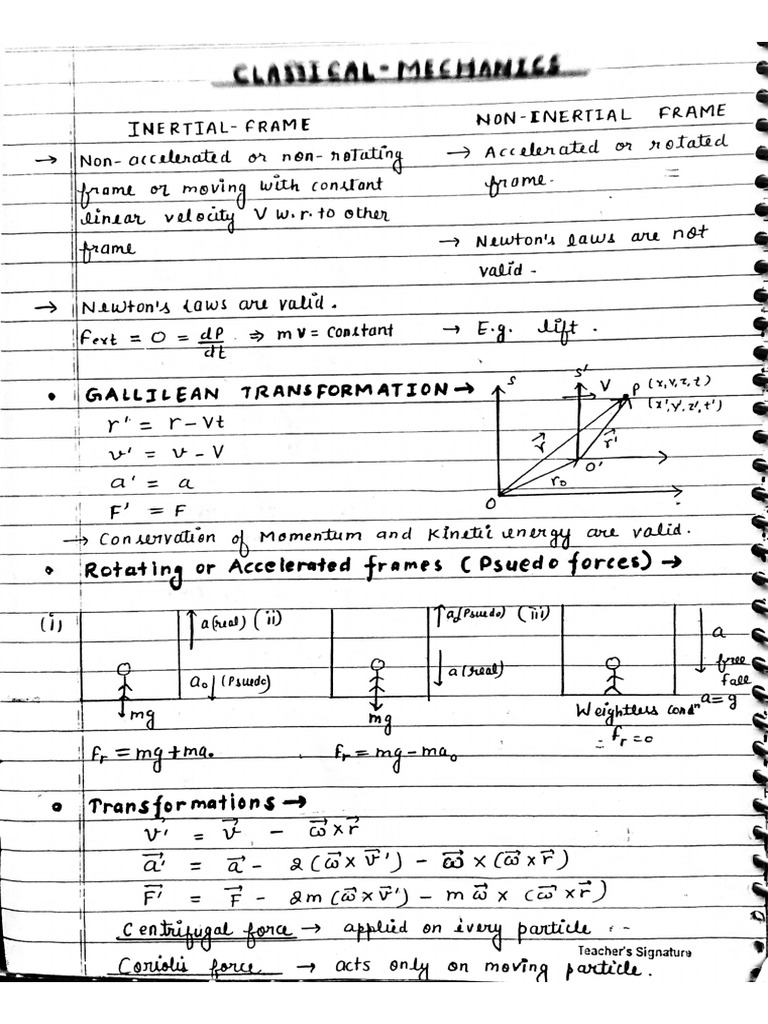 CLASSICAL-MECHANICS
INERTIAL-FRAME
NON-INERTIAL FRAME
→ Non-accelerated or non-rotating
frame or moving with constant
linear velocity V w.r.to other
frame
→ Accelerated or rotated
frame.
→ Newton's laws are not
valid.
→ Newton's laws are valid.
Fext = 0 = dP/dt ⇒ mv = constant
→ E.g. lift.
• GALLILEAN TRANSFORMATION →
r' = r - Vt
v' = v - V
a' = a
F' = F
S
S'
V
P (x,y,z,t)
(x',y',z',t')
r⃗
r⃗'
O'
r₀
O
→ Conservation of Momentum and Kinetic energy are valid.
• Rotating or Accelerated frames (Psuedo forces) →
(i)
a(real)
a₀ (Psuedo)
mg
Fr = mg + ma₀
(ii)
a₀(Psuedo)
a(real)
mg
Fr = mg - ma₀
(iii)
a
free
fall
a = g
Weightless condⁿ
= fr = 0
• Transformations →
v⃗' = v⃗ - ω⃗ × r⃗
a⃗' = a⃗ - 2(ω⃗ × v⃗') - ω⃗ × (ω⃗ × r⃗)
F⃗' = F⃗ - 2m(ω⃗ × v⃗') - mω⃗ × (ω⃗ × r⃗)
Centrifugal force → applied on every particle :-
Teacher's Signature
Coriolis force → acts only on moving particle.